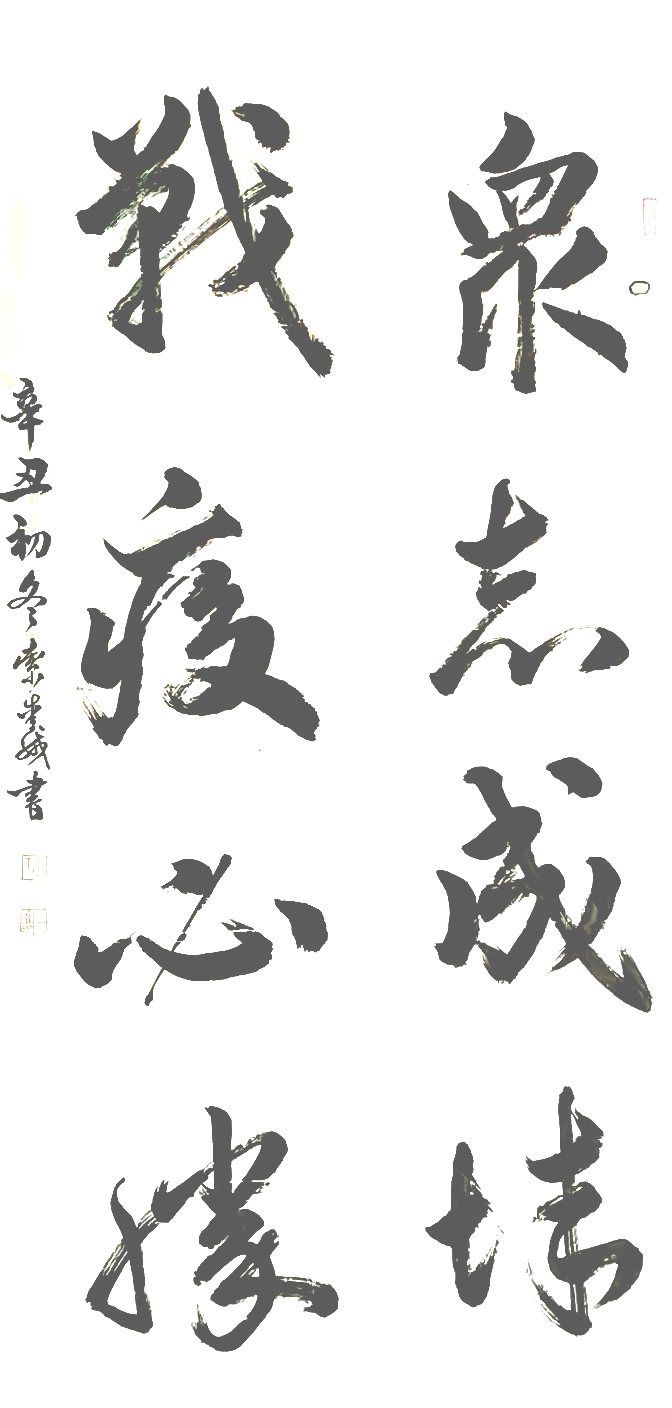 衆志成城
戰疫必勝
辛丑初冬索娥書